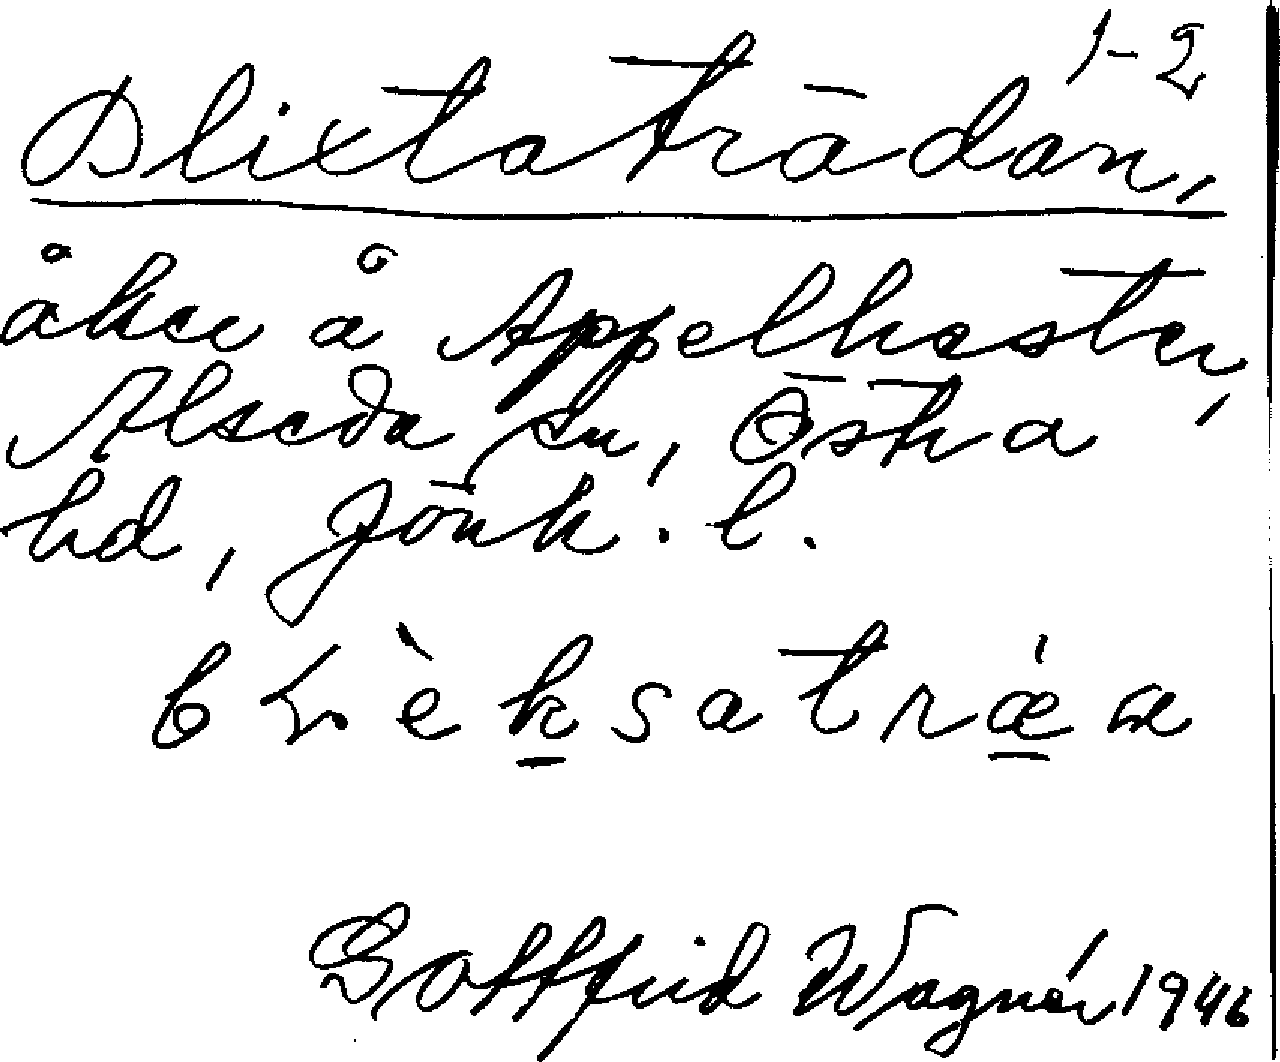 1-2
Blixtaträdan,
åker å Appelkasten,
Alseda sn, Östra
hd, Jönk. l.
Gottfrid Wagnér 1946